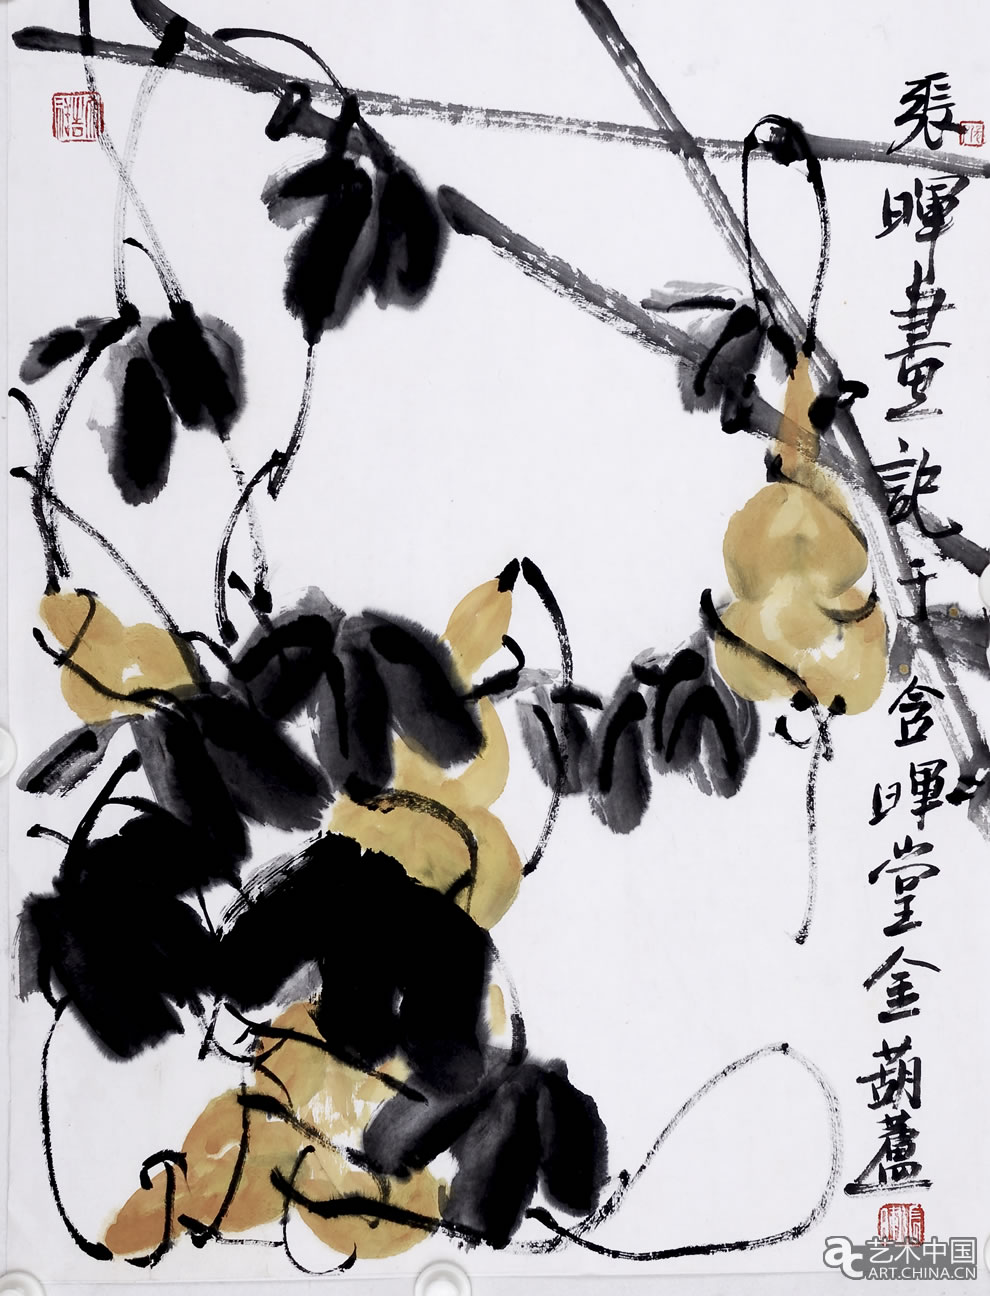 張暉畫記于含暉堂金葫蘆
艺术中国
ART.CHINA.CN